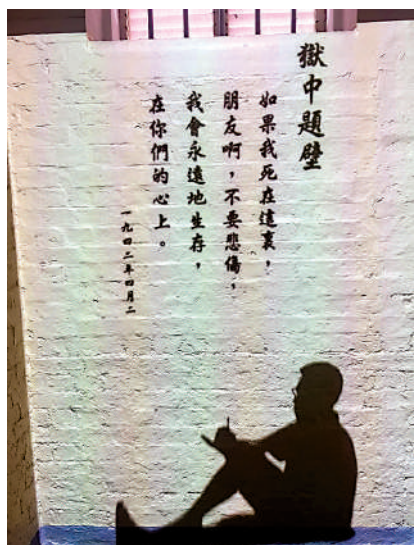 獄中題壁
如果我死在這裏，
朋友啊，不要悲傷，
我會永遠地生存，
在你們的心上。
一九四二年四月二